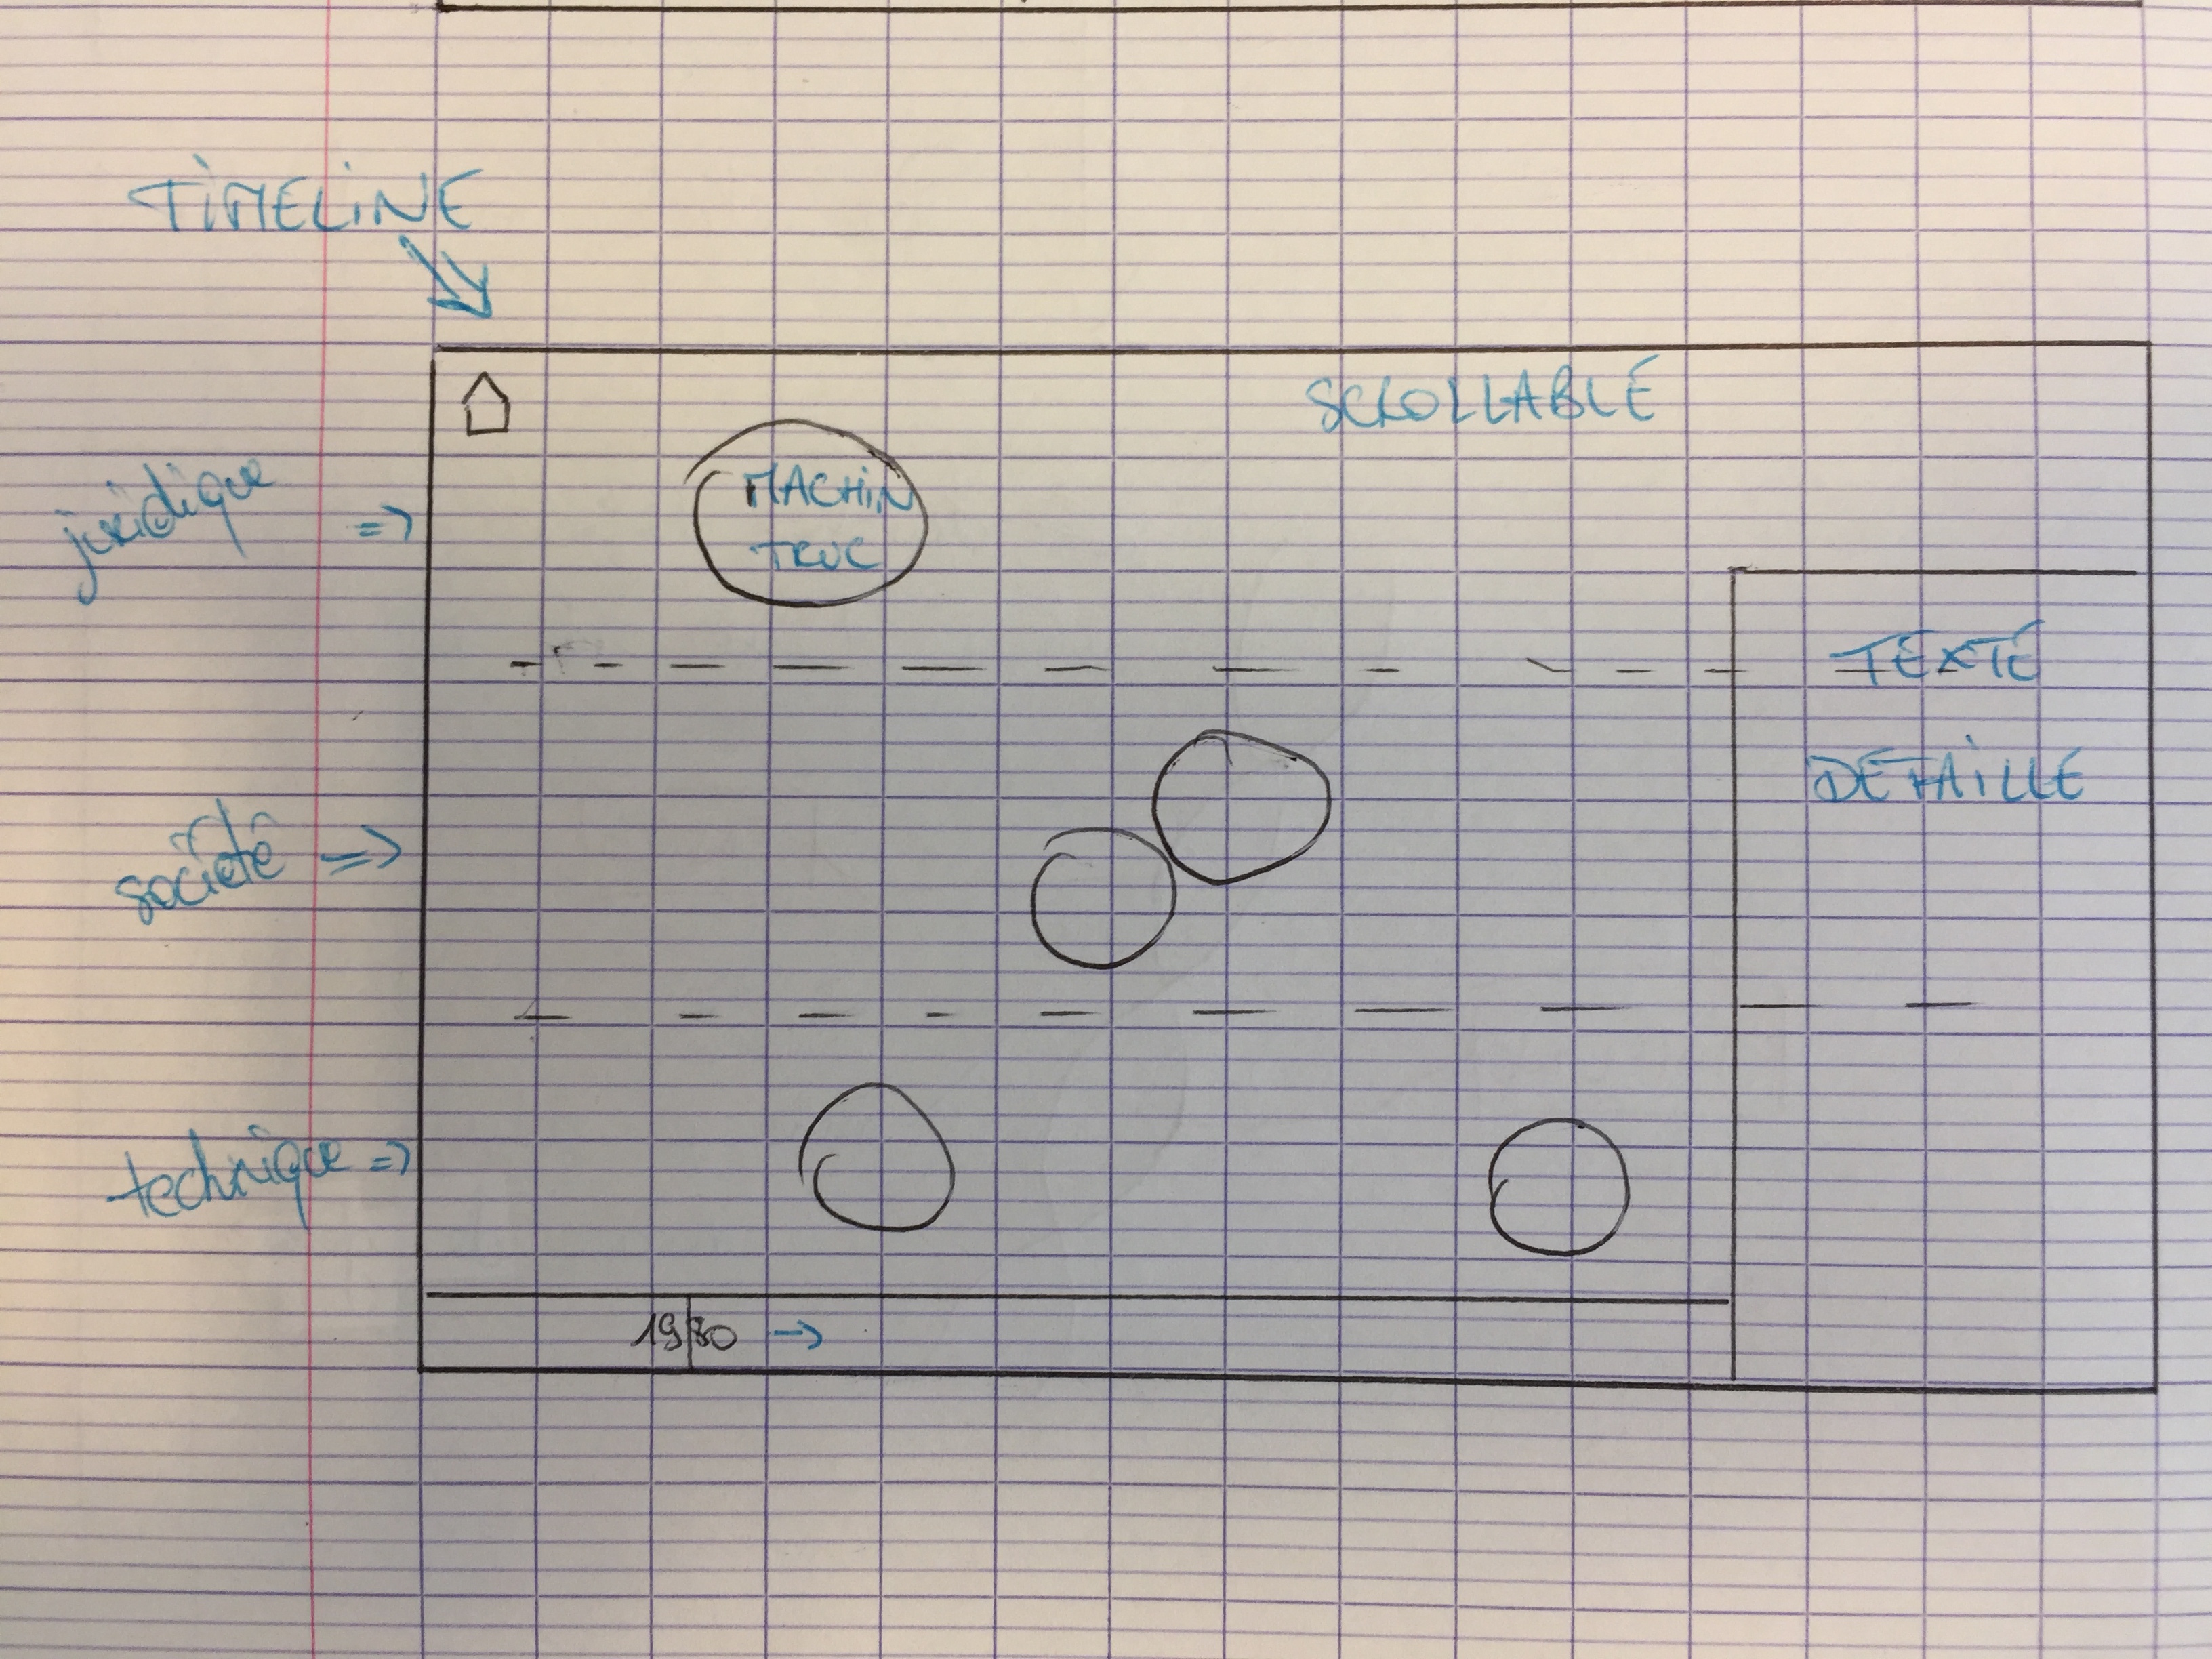 TiMELiNE
SCROLLABLE
juridique =>
MACHiN
TRUC
TEXTE
DETAiLLE
société =>
technique =>
1980 →